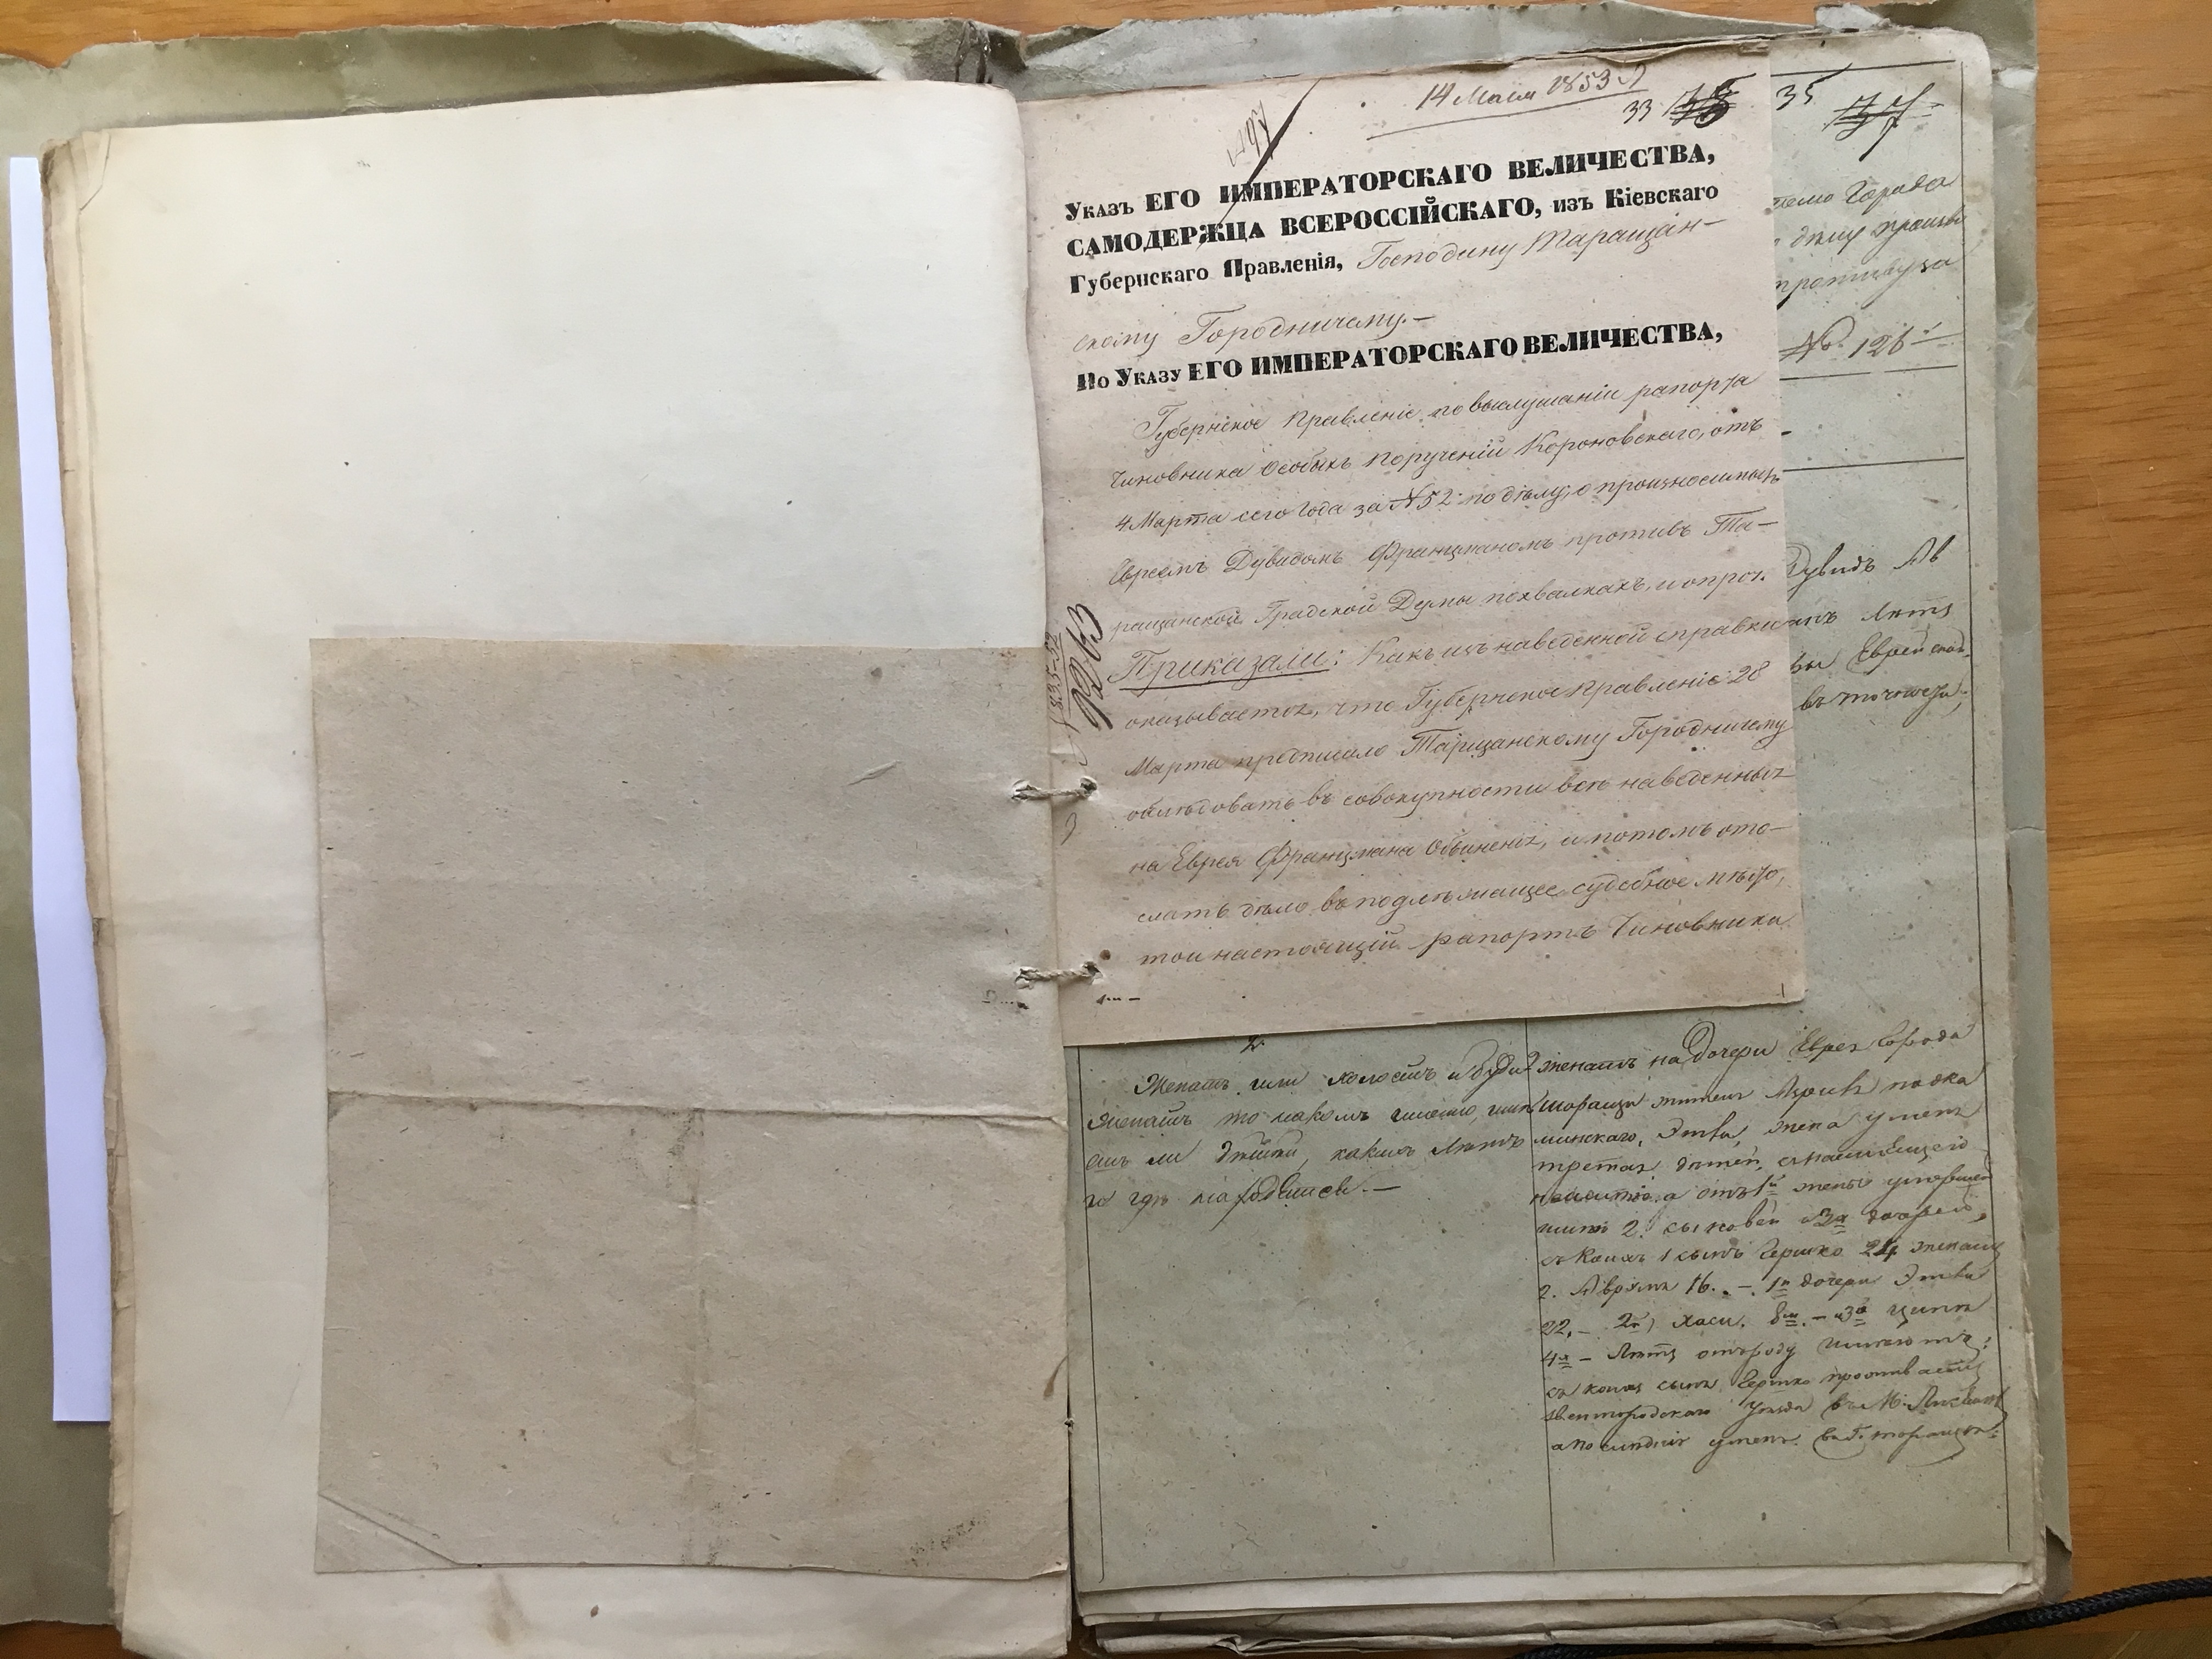 14 Маія 1853
33
497
Указъ ЕГО ИМПЕРАТОРСКАГО ВЕЛИЧЕСТВА,
САМОДЕРЖЦА ВСЕРОССІЙСКАГО, изъ Кіевскаго
Губернскаго Правленія, Господину Таращан-
скому Городничему.—
По Указу ЕГО ИМПЕРАТОРСКАГО ВЕЛИЧЕСТВА,
Губернское Правленіе по выслушаніи рапорта
Чиновника Особыхъ Порученій Короновскаго, отъ
4 Марта сего года за № 52 по дѣлу, о произносимыхъ
Евреемъ Дувидомъ Францманомъ противъ Та-
ращанской Градской Думы похвалкахъ, и о проч.
Приказали: Какъ изъ наведенной справки
оказывается, что Губернское Правленіе 28
Марта предписало Таращанскому Городничему
обслѣдовать въ совокупности все наведенныя
на Еврея Францмана обвиненія, и потомъ ото-
слать дѣло въ подлежащее судебное мѣсто,
то и настоящій рапортъ Чиновника
9263
35
37
Города
дѣлу
№ 126
Дувидъ Ав
лѣтъ
Еврей
2
Женатъ или холостъ и буде
женатъ то на комъ именно, имѣ
етъ ли дѣтей, какихъ лѣтъ
и гдѣ находятся.—
2 женатъ на дочери Еврея города
Таращи жителя
минскаго, Этли, жена у меня
третая, дѣтей, с настоящею
не имѣю, а отъ 1й жены умершей
имѣю 2 сыновей и 3х дочерей,
с коихъ 1 сынъ Гершко 24 женатъ
2. Аврумъ 16. — 1я дочери Этля
22. — 2я, Хася. 8м. — и 3я Ципа
4х — лѣтъ отъ роду имѣютъ:
съ коихъ сынъ Гершко проживаетъ
Звенигородскаго уѣзда въ М. Лисянкѣ
а последнія у меня въ г. Таращѣ: